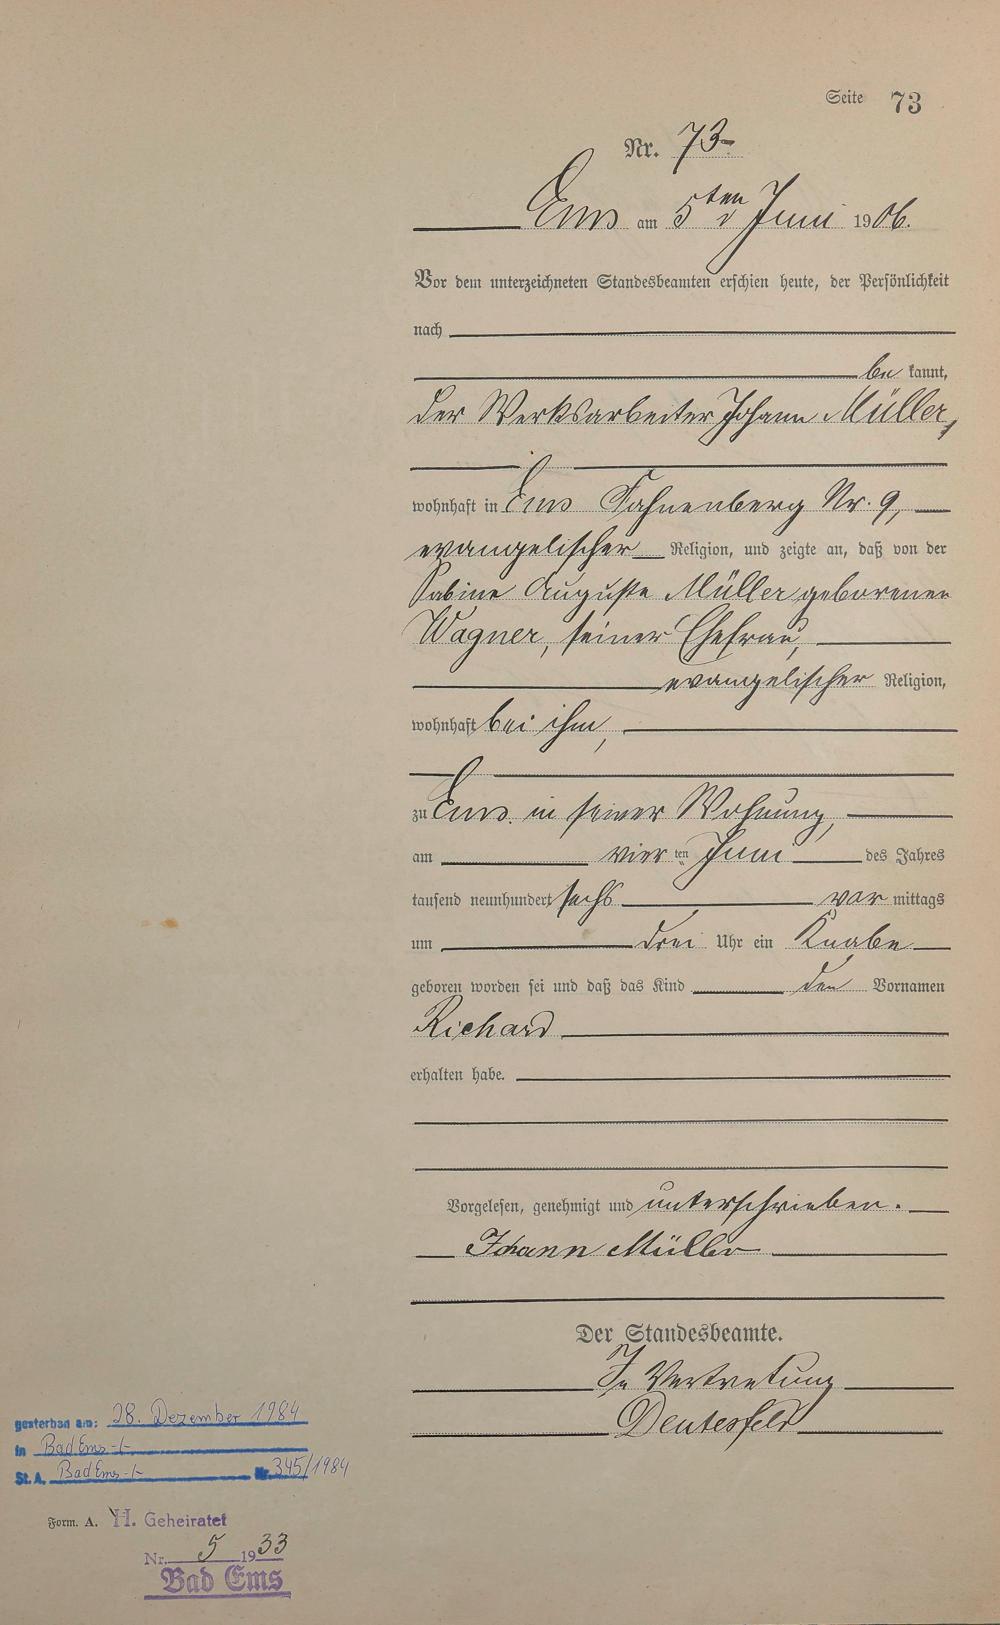 Seite 73
Nr. 73
Ems am 5ten Juni 1906.
Vor dem unterzeichneten Standesbeamten erschien heute, der Persönlichkeit
nach
be kannt,
der Werksarbeiter Johann Müller,
wohnhaft in Ems Fahnenberg Nr. 9,
evangelischer Religion, und zeigte an, daß von der
Sabine Auguste Müller geborenen
Wagner, seiner Ehefrau,
evangelischer Religion,
wohnhaft bei ihm,
zu Ems in seiner Wohnung,
am vier ten Juni des Jahres
tausend neunhundert sechs vor mittags
um drei Uhr ein Knabe
geboren worden sei und daß das Kind den Vornamen
Richard
erhalten habe.
Vorgelesen, genehmigt und unterschrieben.
Johann Müller
Der Standesbeamte.
In Vertretung
Deutesfeld
gestorben am: 28. Dezember 1984
in Bad Ems
St. A. Bad Ems Nr. 345/1984
Form. A. H. Geheiratet
Nr. 5 1933
Bad Ems